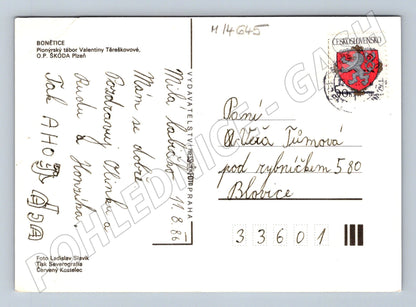 BONĚTICE
Pionýrský tábor Valentiny Těreškovové,
O.P. ŠKODA Plzeň
M 14645
ČESKOSLOVENSKO
50
Milá
11. 8. 86
Mám se dobře
Pozdravuj Olinku a
Rudu a Honzíka.
Tak AHOJ
VYDAVATELSTVÍ
PRAHA
Paní
Věra Tůmová
pod rybníčkem 580
Blovice
33601
Foto Ladislav Slavík
Tisk Severografia
Červený Kostelec
POHLEDNICE - GASH